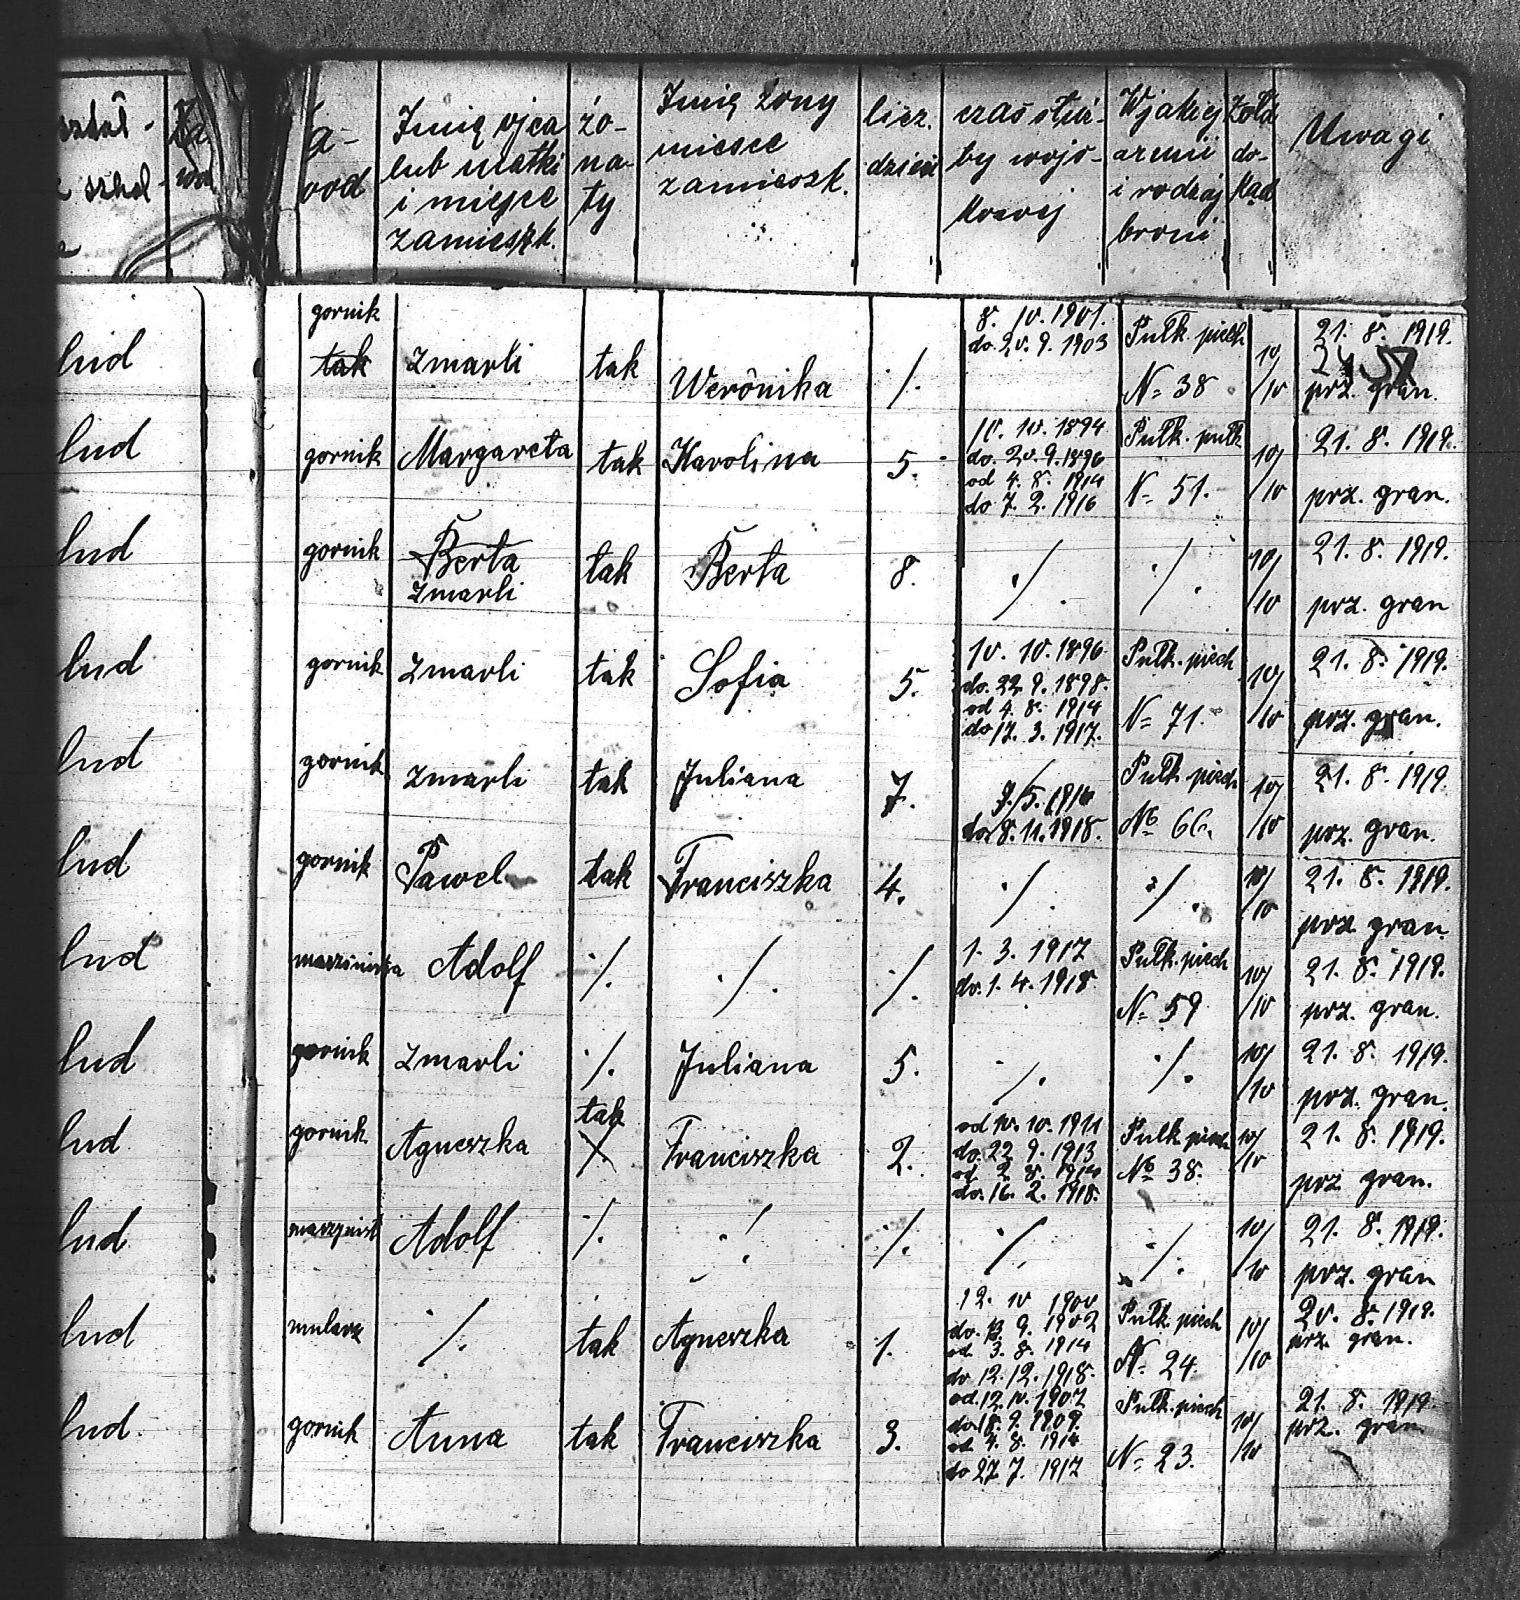 lud
Za-
wod
Imię ojca
lub matki
i miejsce
zamieszk.
żo-
na-
ty
Imię żony
miesce
zamieszk.
licz.
dzieci
czas służ-
by wojs-
kowej
W jakiej
armii
i rodzaj
broni
Żołd
do-
kąd
Uwagi
lud gornik tak Zmarli tak Weronika ./. 8. 10. 1901. do. 20. 9. 1903 Pułk. piech. № 38 10/10 21. 8. 1919. prz. gran.
lud gornik Margareta tak Karolina 5. 10. 1894 do. 20. 9. 1896 od 4. 8. 1914 do 7. 2. 1916 Pułk. pułk № 51. 10/10 21. 8. 1919. prz. gran.
lud gornik Berta Zmarli tak Berta 8. ./. ./. 10/10 21. 8. 1919. prz. gran
lud gornik Zmarli tak Sofia 5. 10. 10. 1896 do. 22. 9. 1898. od 4. 8. 1914 do 17. 3. 1917. Pułk. piech № 71. 10/10 21. 8. 1919. prz. gran.
lud gornik Zmarli tak Juliana 7. 7/5. 1916 do 8. 11. 1918. Pułk piech № 66. 10/10 21. 8. 1919. prz. gran.
lud gornik Pawel tak Franciszka 4. ./. ./. 10/10 21. 8. 1919. prz. gran.
lud Adolf ./. ./. ./. 1. 3. 1917 do. 1. 4. 1918 Pułk. piech № 59 10/10 21. 8. 1919. prz. gran.
lud gornik Zmarli ./. Juliana 5. ./. ./. 10/10 21. 8. 1919. prz. gran.
lud gornik Agneszka tak Franciszka 2. od 10. 10. 1911 do. 22 9. 1913 od 2. 8. 1914 do. 16. 2. 1918. Pułk piech № 38. 10/10 21. 8. 1919. prz gran.
lud Adolf ./. ./. ./. ./. ./. 10/10 21. 8. 1919. prz. gran
lud mularz ./. tak Agneszka 1. 12. 10 1900 do. 13. 9. 1902 od. 3. 8. 1914 do 12. 12. 1918. Pułk. piech № 24. 10/10 20. 8. 1919. prz. gran.
lud. gornik Anna tak Franciszka 3. od. 12. 10. 1907 do 18. 9. 1909. od 4. 8. 1914 do 27. 7. 1917 Pułk. piech № 23. 10/10 21. 8. 1919. prz. gran